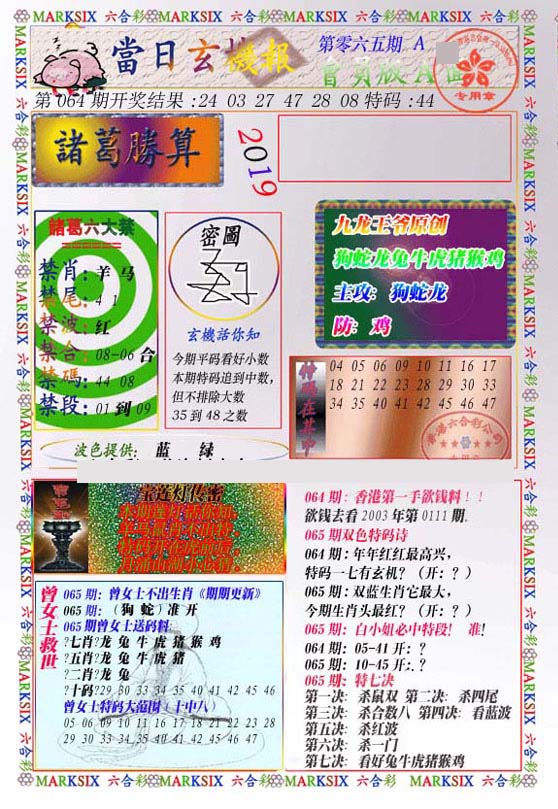 MARKSIX 六合彩 MARKSIX 六合彩 MARKSIX 六合彩 MARKSIX 六合彩 MARKSIX 六合彩
當日玄機報
第零六五期 A
會員版A面
专用章
第 064 期开奖结果 :24 03 27 47 28 08 特码 :44
諸葛勝算
2019
諸葛六大禁
禁肖: 羊 马
禁尾: 4 1
禁波: 红
禁合: 08-06 合
禁碼: 44 08
禁段: 01 到 09
密圖
玄機話你知
今期平码看好小数
本期特码追到中数,
但不排除大数
35 到 48 之数
九龙王爷原创
狗蛇龙兔牛虎猪猴鸡
主攻: 狗蛇龙
防: 鸡
特码在其中
04 05 06 09 10 11 16 17
18 21 22 23 28 29 30 33
34 35 40 41 42 45 46 47
波色提供: 蓝 绿
宝莲灯传密
曾女士救世
065 期: 曾女士不出生肖《期期更新》
065 期: (狗 蛇) 准 开
065 期曾女士送码料:
?七肖?龙 兔 牛 虎 猪 猴 鸡
?五肖?龙 兔 牛 虎 猪
?二肖?龙 兔
?十码?29 30 33 34 35 40 41 42 45 46
曾女士特码大范围 (十中八)
05 06 09 10 11 16 17 18 21 22 23 28
29 30 33 34 35 40 41 42 45 46 47
064 期: 香港第一手欲钱料!!
欲钱去看 2003 年第 0111 期.
065 期双色特码诗
064 期: 年年红红最高兴,
特码一七有玄机? (开: ?)
065 期: 双蓝生肖它最大,
今期生肖头最红? (开: ?)
065 期: 白小姐必中特段! 准!
064 期: 05-41 开: ?
065 期: 10-45 开: ?
065 期: 特七决
第一决: 杀鼠双 第二决: 杀四尾
第三决: 杀合数八 第四决: 看蓝波
第五决: 杀红波
第六决: 杀一门
第七决: 看好兔牛虎猪猴鸡
MARKSIX 六合彩 MARKSIX 六合彩 MARKSIX 六合彩 MARKSIX 六合彩 MARKSIX 六合彩